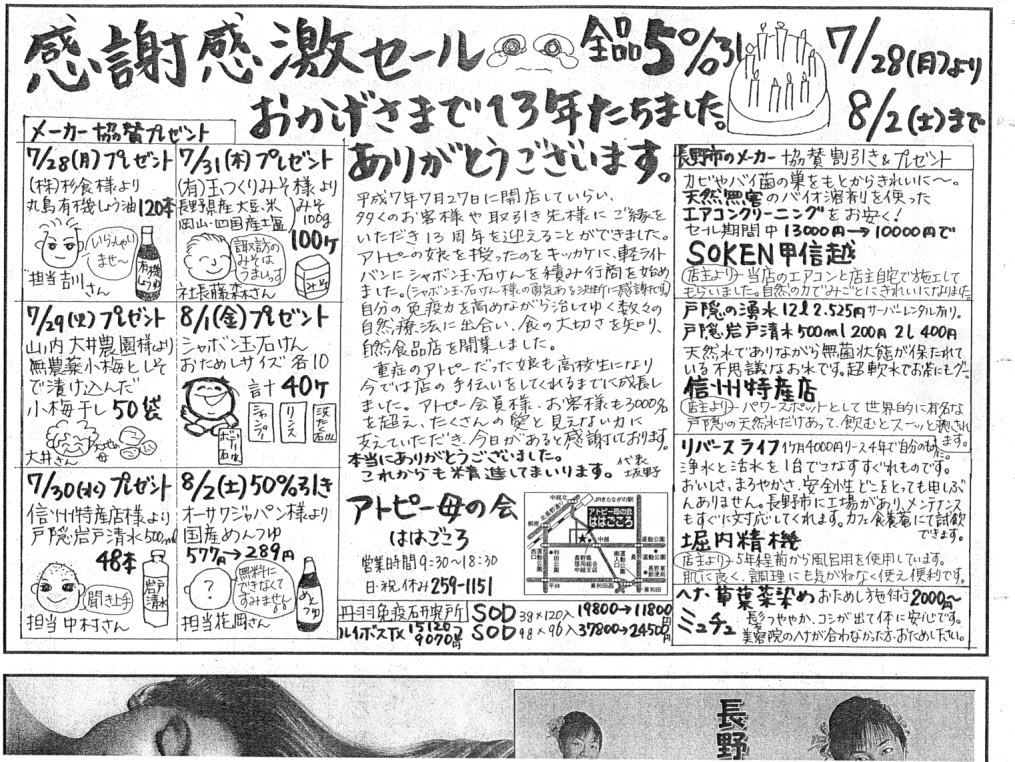 感謝感激セール
全品5%引
7/28(月)より
8/2(土)まで
おかげさまで13年たちました。
ありがとうございます。
メーカー協賛プレゼント
7/28(月)プレゼント
(株)杉食様より
丸島有機しょう油120本
いらっしゃいませ〜
有機しょうゆ
担当吉川さん
7/31(木)プレゼント
(有)玉つくりみそ様より
長野県産大豆、米
岡山・四国産工塩
みそ100g
100ケ
諏訪のみそはうまいっす
みそ
社長藤森さん
7/29(火)プレゼント
山ノ内大井農園様より
無農薬小梅としそ
で漬け込んだ
小梅干し50袋
大井さん
8/1(金)プレゼント
シャボン玉石けん
おためしサイズ各10
計40ケ
シャンプー
リンス
ボディ石けん
7/30(水)プレゼント
信州特産店様より
戸隠岩戸清水500ml
48本
聞き上手
岩戸清水
担当中村さん
8/2(土)50%引き
オーサワジャパン様より
国産めんつゆ
577円→289円
?
無料にできなくてすみません
めんつゆ
担当花岡さん
平成7年7月27に開店していらい、
多くのお客様や取引き先様にご縁を
いただき13周年を迎えることができました。
アトピの娘を授ったのをキッカケに、軽ライト
バンにシャボン玉石けんを積み行商を始め
ました。(シャボン玉石けん様の勇気ある決断に感謝です)
自分の免疫力を高めながら治してゆく数々の
自然療法に出合い、食の大切さを知り、
自然食品店を開業しました。
重症のアトピーだった娘も高校生になり
今では店の手伝いをしてくれるまでに成長し
ました。アトピー会員様、お客様も3000名
を超え、たくさんの愛と見えない力に
支えていただき、今日があると感謝しております。
本当にありがとうございました。
これからも精進してまいります。代表坂野
アトピー母の会
ははごころ
営業時間9:30〜18:30
日・祝休み259-1151
JRきたながの駅
中越北
アトピー母の会
ははごころ
中越
桐原
西運動公園
和田公園
長野県信用組合中越支店
南運動公園入口
運動公園
長野東
平林
東和田西
東和田
丹羽免疫研究所 SOD 3g×120入 19800→11800円
ルイボスTX 15120→9070円 SOD 4g×96入 37800→24500円
長野市のメーカー協賛割引き&プレゼント
カビやバイ菌の巣をもとからきれいに〜。
天然無害のバイオ溶剤を使った
エアコンクリーニングをお安く!
セール期間中13000円→10000円で
SOKEN甲信越
店主より 当店のエアコンと店主自宅で施工して
もらいました。自然の力でみごとにきれいになりました。
戸隠の湧水12ℓ2.525円サーバーレンタル有り。
戸隠岩戸清水500ml200円2L400円
天然水でありながら無菌状態が保たれて
いる不思議なお水です。超軟水でお茶にもグー
信州特産店
店主より パワースポットとして世界的に有名な
戸隠の天然水だけあって、飲むとスーッと癒されます。
リバースライフ 1ヶ月4000円リース4年で自分のもの。
浄水と活水を1台でこなすすぐれものです。
おいしさ、まろやかさ、安全性どこをとっても申しぶ
んありません。長野市に工場があり、メンテナンス
もすぐに対応してくれます。カフェ食養庵にて試飲できます。
堀内精機
店主より 5年程前から風呂用を使用しています。
肌に良く、調理にも気がねなく使え便利です。
ヘナ、草葉薬染め おためし施付2000円〜
ミュチュ 髪つややか、コシが出て体に安心です。
美容院のヘナが合わなかった方、おためし下さい。
長野